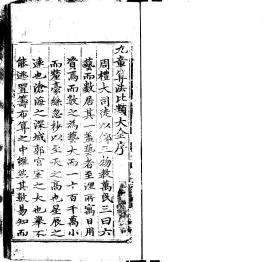 九章算法比類大全序
周禮大司徒以鄉三物教萬民三曰六
藝而數居其一蓋藝者至理所寓日用
資焉而數之為藝大而一十百千萬小
而釐毫絲忽杪以至天之高也星辰之
遠也滄海之深城郭宮室之大也舉不
能逃置籌布算之中灿然其數易知而